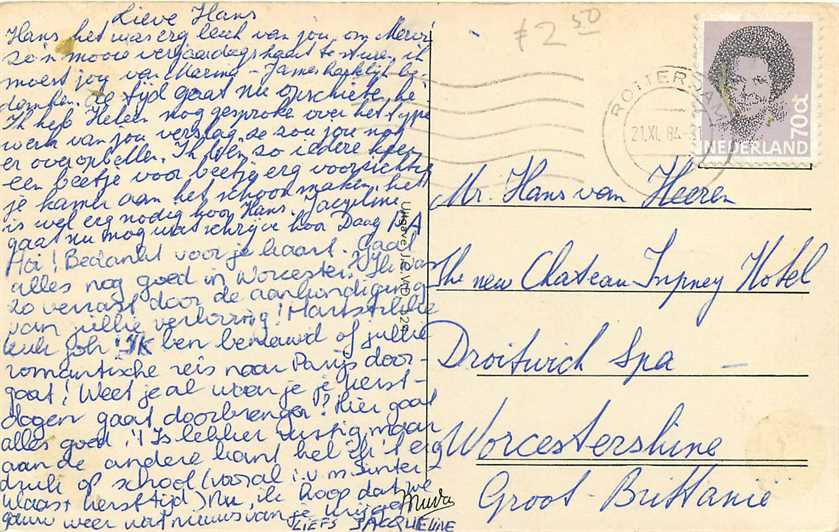 Lieve Hans
Hans het was erg leuk van jou, om
zo'n mooie verjaardagskaart te sturen, ik
moest jou van
De tijd gaat nu opschieten hè
Ik heb Heleen nog gesproken over het type
werk van jou verslag, ze zou jou nog
er over opbellen. Ik ben zo iedere keer
een beetje voor beetje erg voorzichtig
je kamer aan het schoonmaken, het
is wel erg nodig hoor Hans. Jacqueline
gaat nu nog wat schrijve hoor Daag PA
Hoi! Bedankt voor je kaart. Gaat
alles nog goed in Worcester? Ik was
zo verrast door de aankondiging
van jullie verloving! Hartstikke
leuk joh! Ik ben benieuwd of jullie
romantische reis naar Parijs door-
gaat! Weet je al waar je je kerst-
dagen gaat doorbrengen? Hier gaat
alles goed! Is lekker rustig maar
aan de andere kant heb ik 't erg
druk op school (vooral i.v.m Sinter-
klaas + kersttijd) Nu, ik hoop dat we
gauw weer wat nieuws van je krijgen
LIEFS JACQUELINE
ƒ 2 50
ROTTERDAM
21.XI. 84
NEDERLAND
70ct
Mr. Hans van Heeren
The new Chateau Inpney Hotel
Droitwich Spa -
Worcestershine
Groot-Brittanië